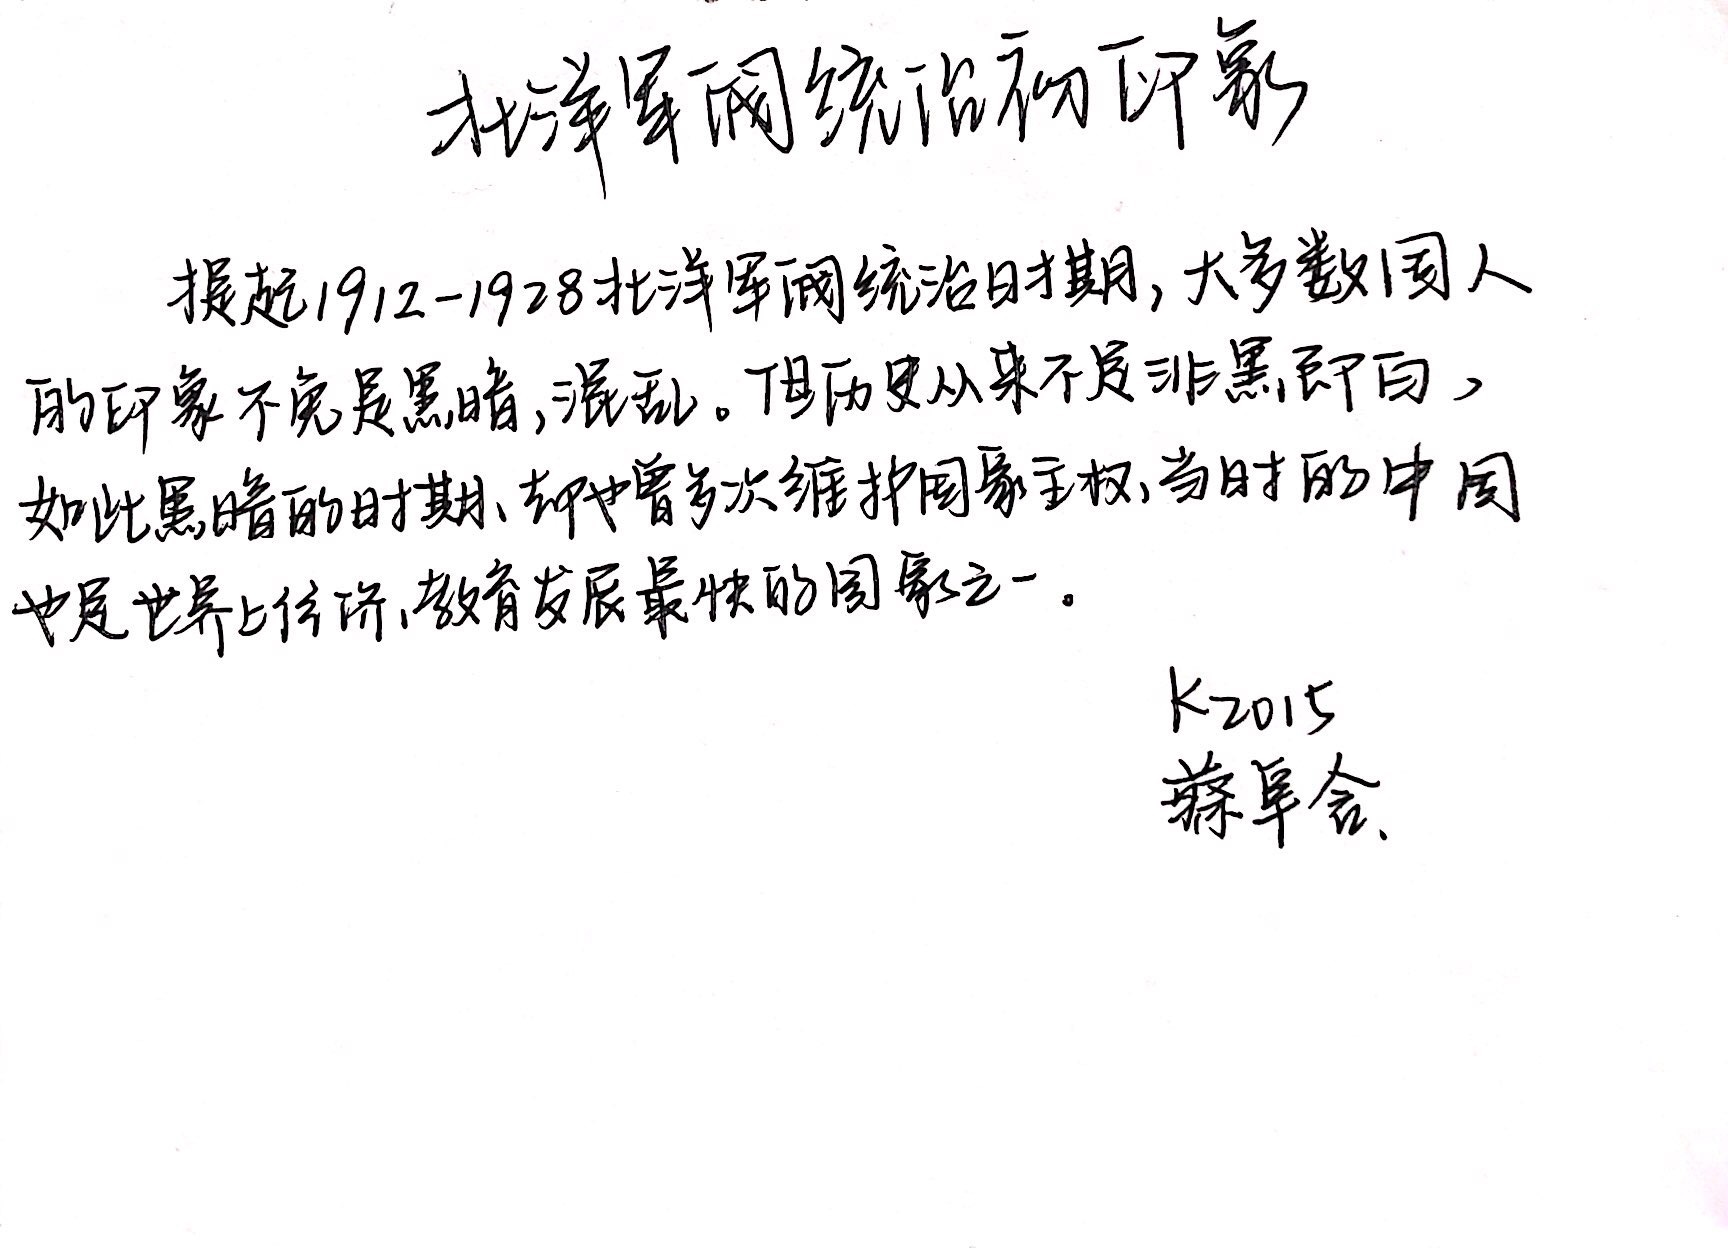 北洋军阀统治初印象
提起1912-1928北洋军阀统治时期,大多数国人
的印象不免是黑暗,混乱。但历史从来不是非黑即白,
如此黑暗的时期、却也曾多次维护国家主权、当时的中国
也是世界上经济、教育发展最快的国家之一。
K2015
蔡阜含、